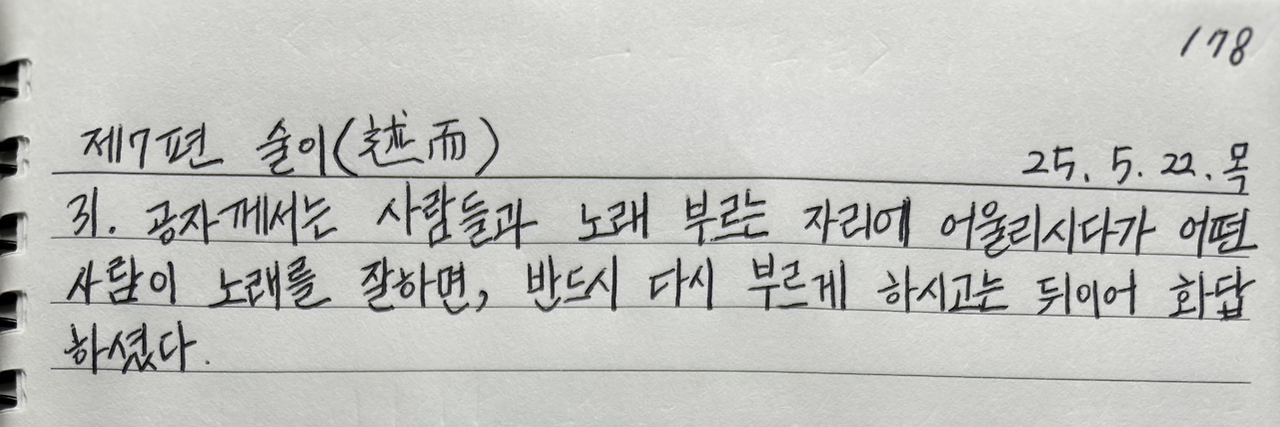 178
제7편 술이(述而) 25. 5. 22. 목
31. 공자께서는 사람들과 노래 부르는 자리에 어울리시다가 어떤
사람이 노래를 잘하면, 반드시 다시 부르게 하시고는 뒤이어 화답
하셨다.